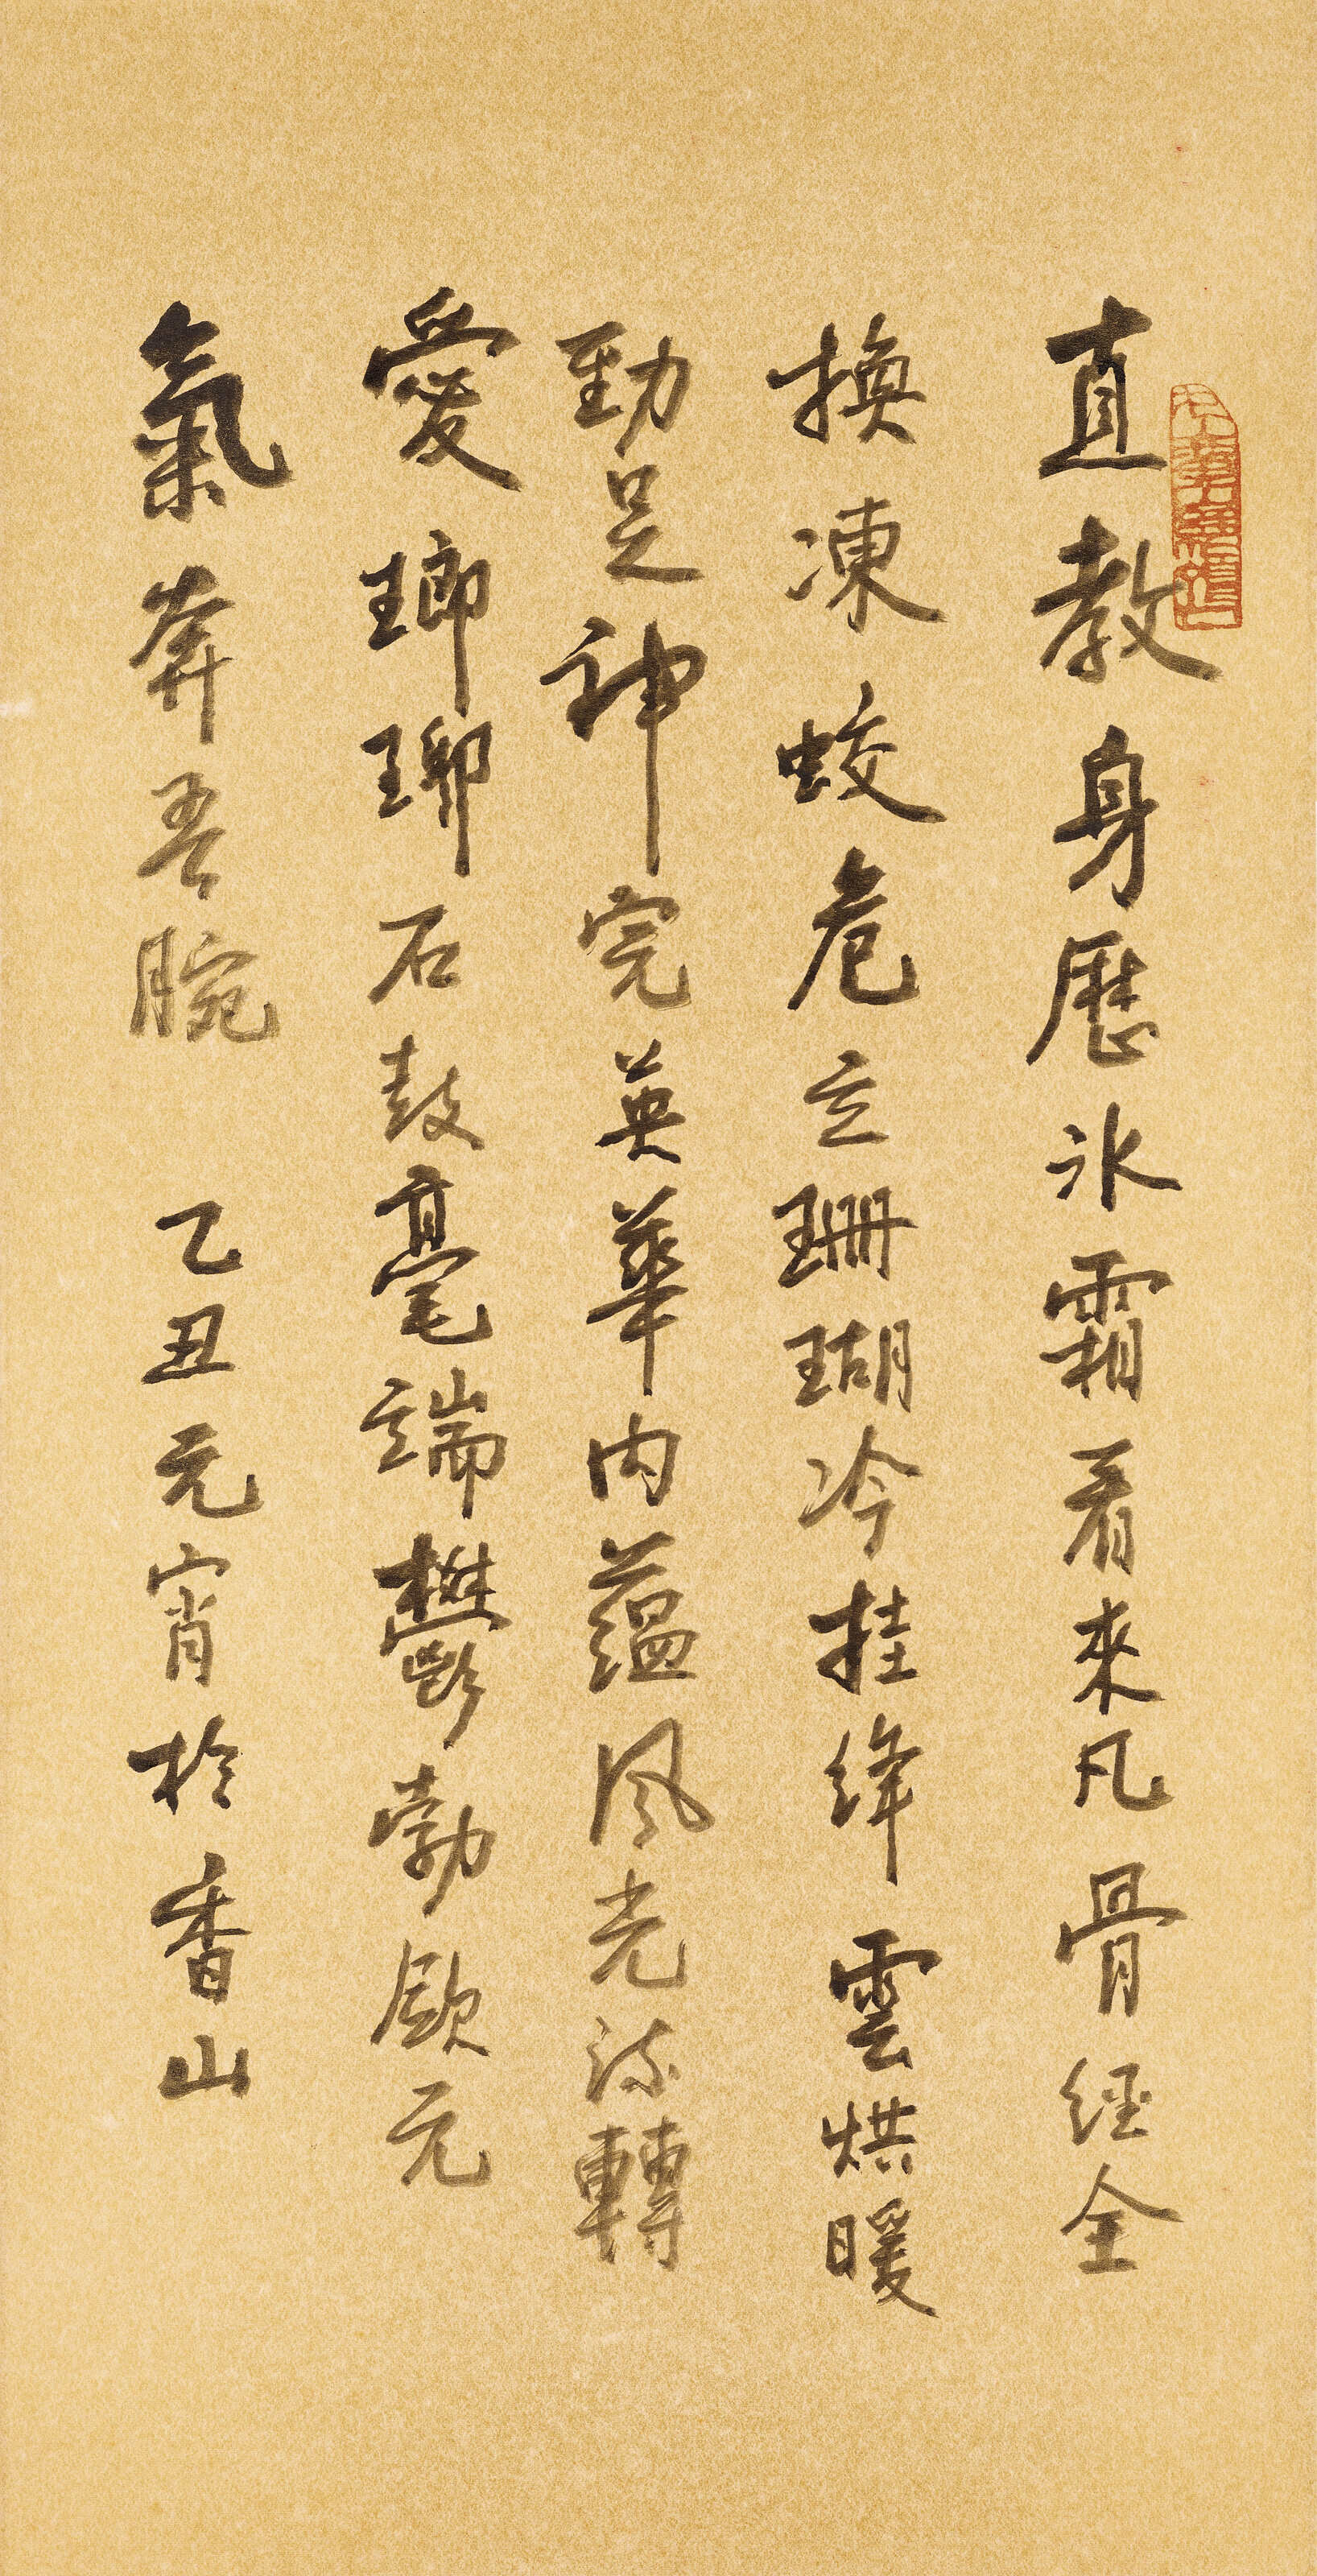 直教身歷冰霜看來凡骨經全
換凍蛟危立珊瑚冷挂絳雲烘暖
勁足神完英華內蘊風光流轉
愛瑯琊石鼓毫端鬱勃歐元
氣奔吾腕 乙丑元宵於香山